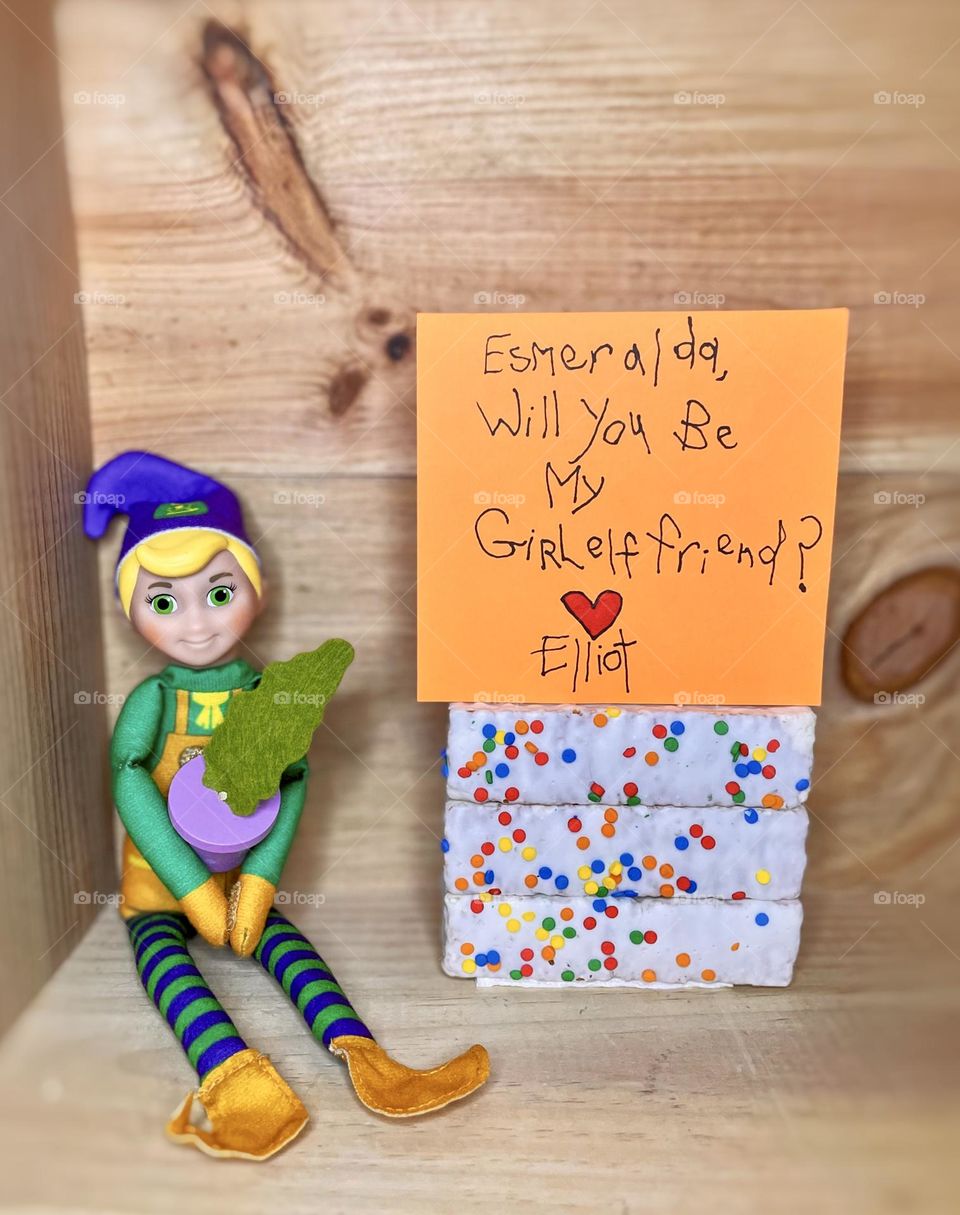 Esmeralda,
Will You Be
My
Girlelffriend?
Elliot
foap